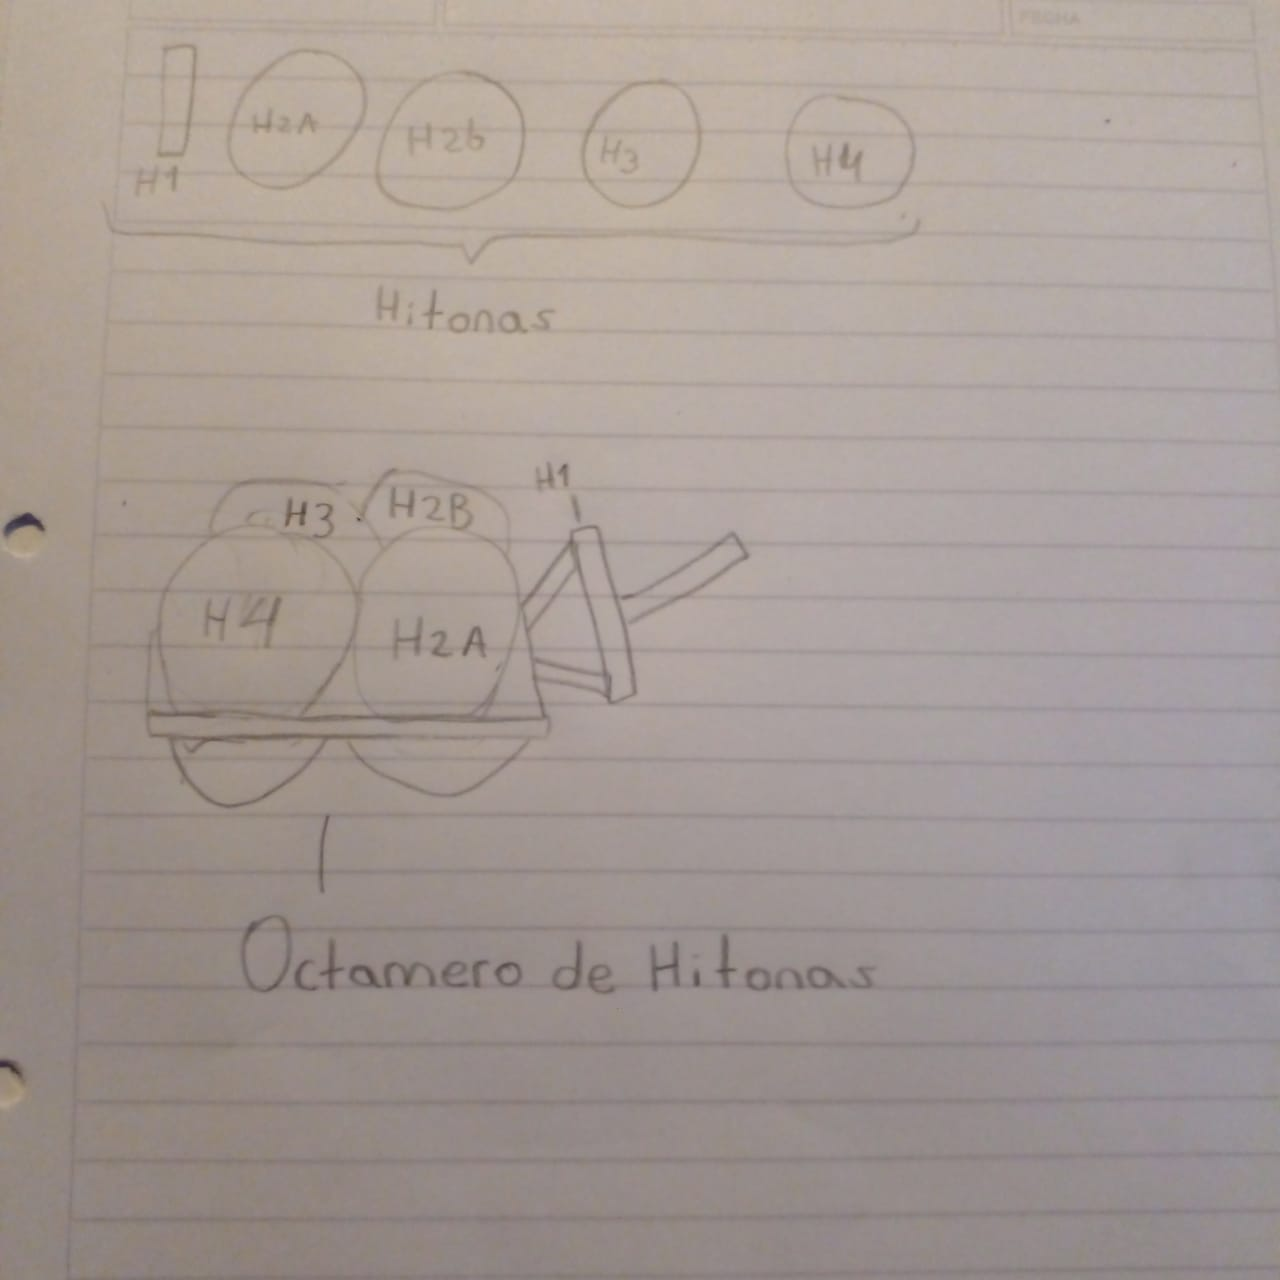 FECHA
H2A
H2b
H3
H4
H1
Hitonas
H1
H3
H2B
H4
H2A
Octamero de Hitonas